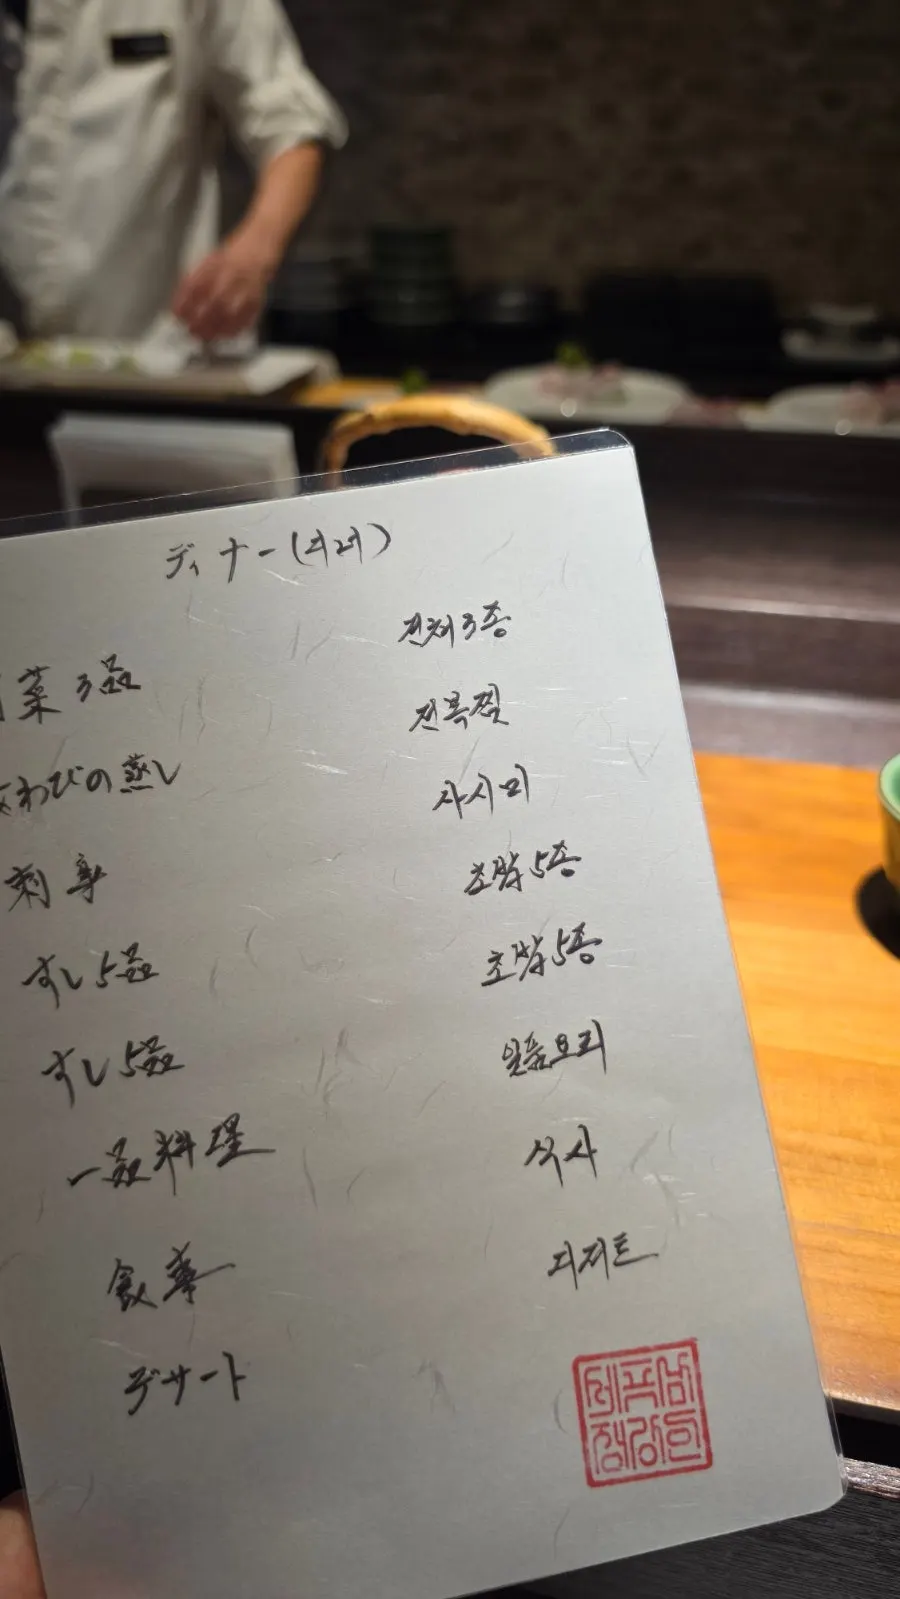 ディナー(디너)
菜 3品 전채 3종
わびの蒸し 전복찜
刺身 사시미
すし 5品 초밥 5종
すし 5品 초밥 5종
一品料理 일품요리
食事 식사
デザート 디저트